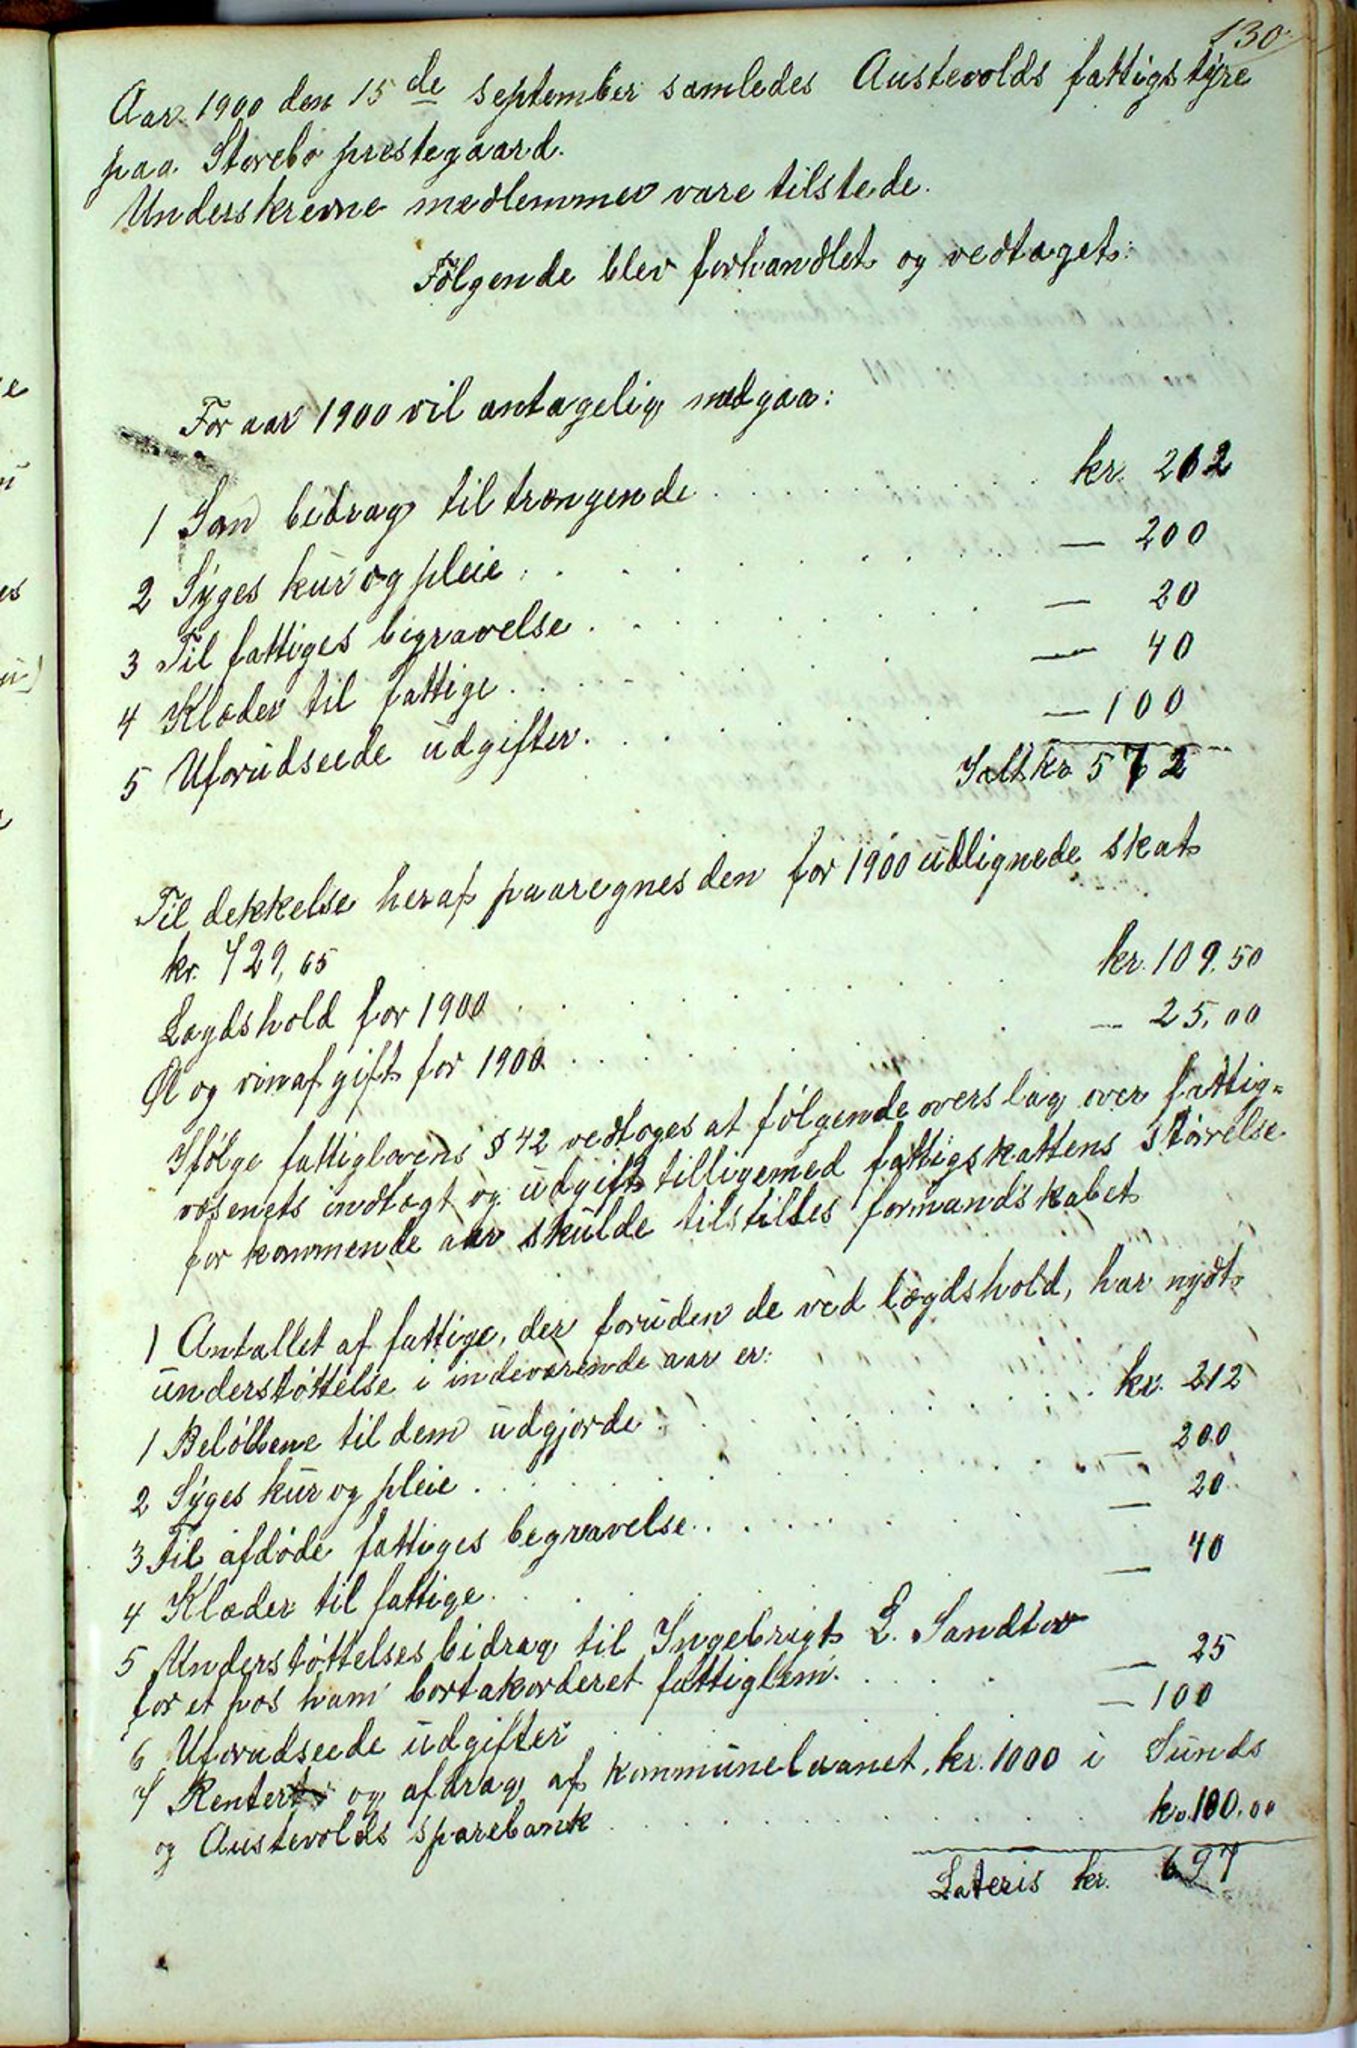 130
Aar 1900 den 15de september samledes Austevolds fattigstyre
paa Storebø prestegaard.
Underskrevne medlemmer vare tilstede.
Følgende blev forhandlet og vedtaget:
For aar 1900 vil antagelig medgaa:
1 Som bidrag til trængende . . . . kr. 212
2 Syges kur og pleie . . . . — 200
3 Til fattiges begravelse . . . . — 20
4 Klæder til fattige . . . . — 40
5 Uforudseede udgifter . . . . — 100
Ialt kr 572
Til dekkelse heraf paaregnes den for 1900 udlignede skat
kr. 429,65
Lægdshold for 1900 . . . . kr. 109.50
Øl og vinafgift for 1900 . . . . — 25.00
Ifølge fattiglovens § 42 vedtoges at følgende overslag over fattig-
væsenets indtægt og udgift tilligemed fattigskattens størrelse
for kommende aar skulde tilstilles formandskabet
1 Antallet af fattige, der foruden de ved lægdshold, har nydt
understøttelse i indeværende aar er:
1 Beløbene til dem udgjorde . . . . kr. 212
2 Syges kur og pleie . . . . — 200
3 Til afdøde fattiges begravelse . . . . — 20
4 Klæder til fattige . . . . — 40
5 Understøttelsesbidrag til Ingebrigt L. Sandtor
for et hos ham bortakorderet fattiglem . . . . — 25
6 Uforudseede udgifter — 100
7 Renter og afdrag af kommunelaanet, kr. 1000 i Sunds
og Austevolds sparebank . . . . kr. 100.00
Lateris kr. 697